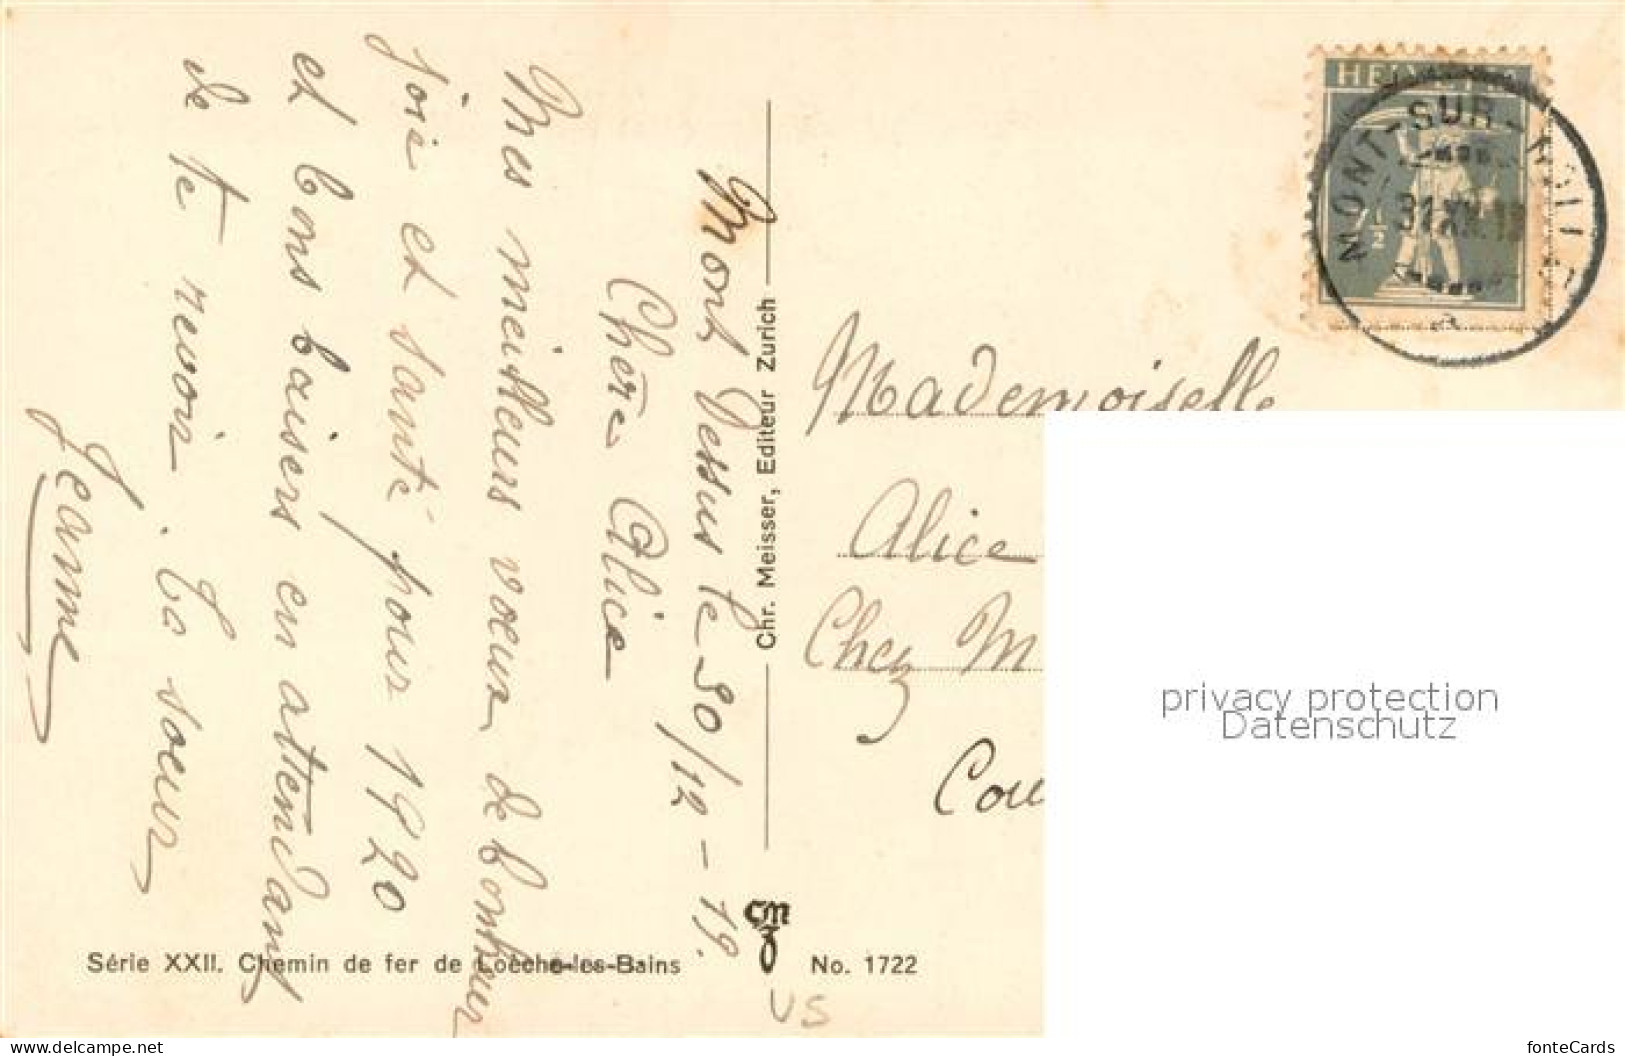 Mont Dessus le 30/12-19.
Chère Alice
Mes meilleurs voeux de bonheur
joie et santé pour 1920
et bons baisers en attendant
de te revoir. Ta soeur
Jeanne
Chr. Meisser, Editeur Zurich
HELVETIA
MONT-SUR-ROLLE
31 XII.19
7 1/2
Mademoiselle
Alice
Chez M
Cou
privacy protection
Datenschutz
CMZ
Série XXII. Chemin de fer de Loèche-les-Bains
No. 1722
VS
www.delcampe.net
fonteCards